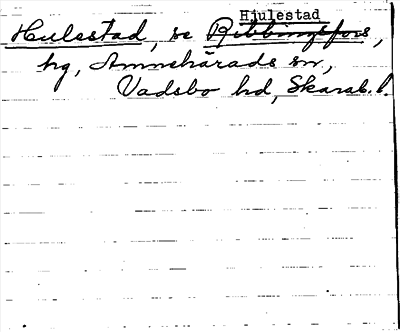 Hjulestad
Hulestad, se Ribbingsfors,
hg, Amnehärads sn,
Vadsbo hd, Skarab. l.